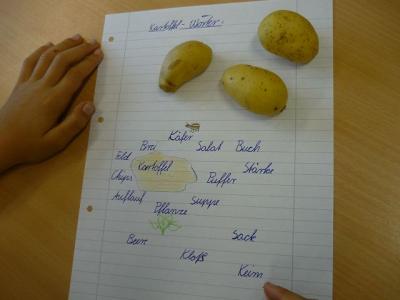 Kartoffel-Wörter.
Käfer
Brei Salat Buch
Feld Kartoffel Stärke
Chips Puffer
Auflauf Suppe
Pflanze
Beet Sack
Kloß
Keim